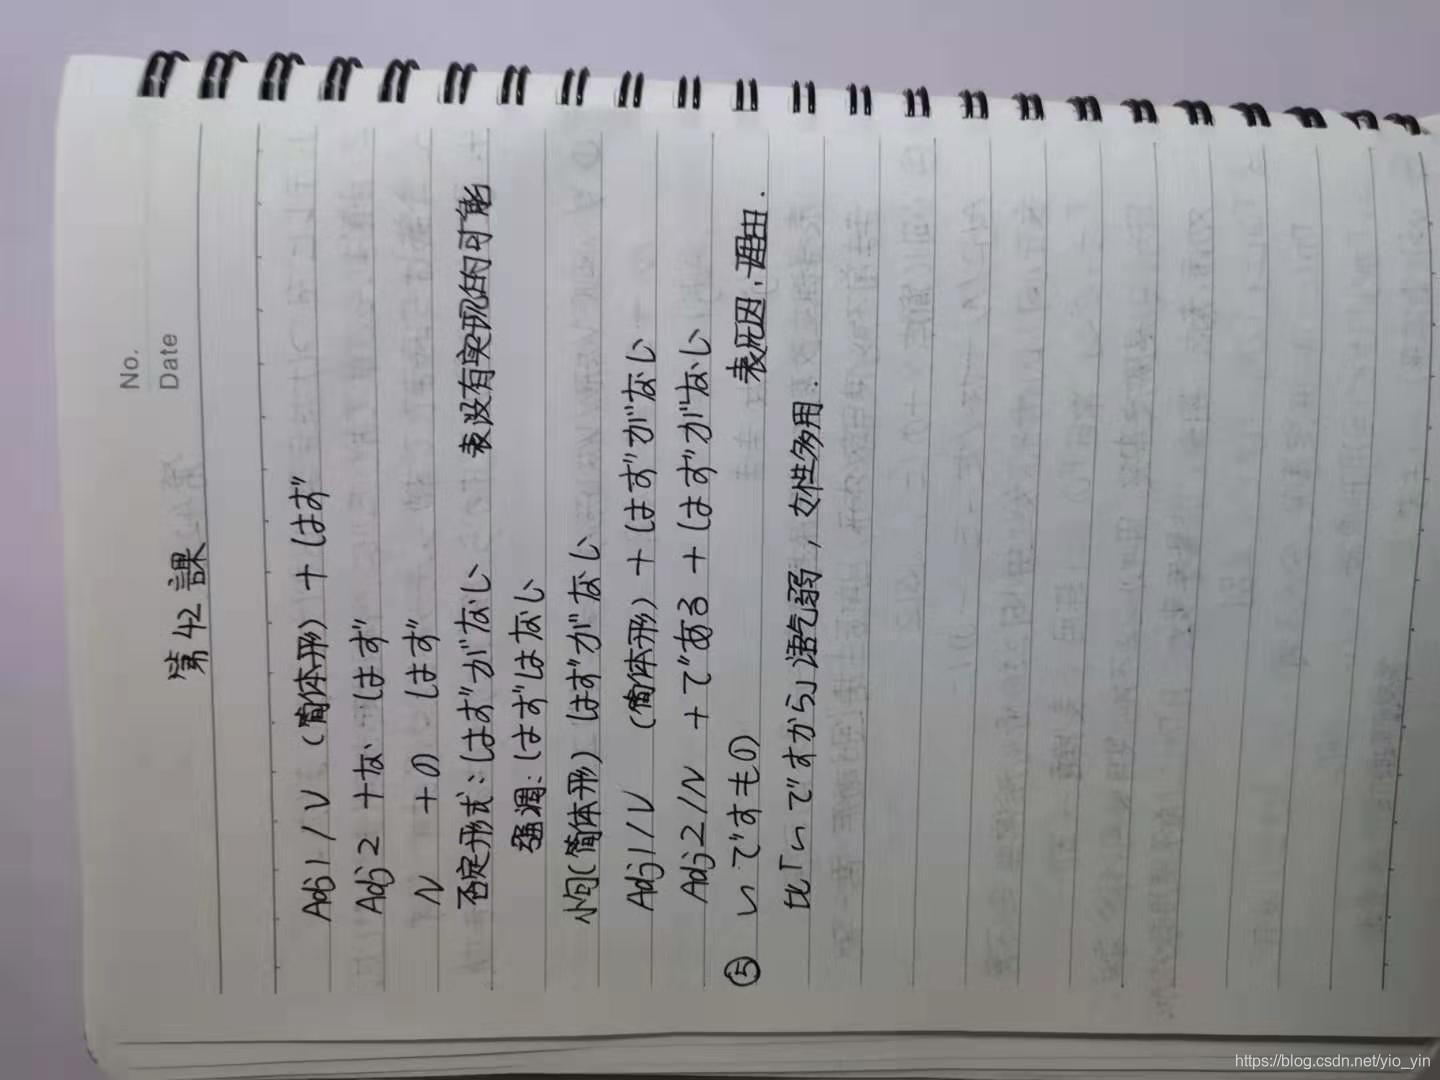 No.
Date
第42課
Adj1/V（简体形）+はず
Adj2 +な はず
N +の はず
否定形式：はずがない 表没有实现的可能
强调：はずはない
小句（简体形）はずがない
Adj1/V （简体形）+はずがない
Adj2/N +である+はずがない
⑤ いですもの 表原因，理由.
比「いですから」语气弱，女性多用.
https://blog.csdn.net/yio_yin